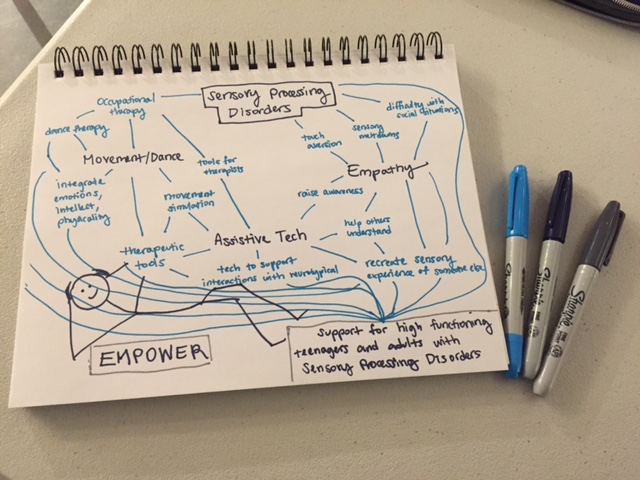 Sensory Processing
Disorders
Occupational
therapy
dance therapy
Movement/Dance
integrate
emotions,
intellect,
physicality
movement
simulation
tools for
therapists
therapeutic
tools
touch
aversion
sensory
meltdowns
difficulty with
social situations
Empathy
raise awareness
help others
understand
Assistive Tech
tech to support
interactions with neurotypical
recreate sensory
experience of someone else
EMPOWER
support for high functioning
teenagers and adults with
Sensory Processing Disorders
Sharpie
Sharpie